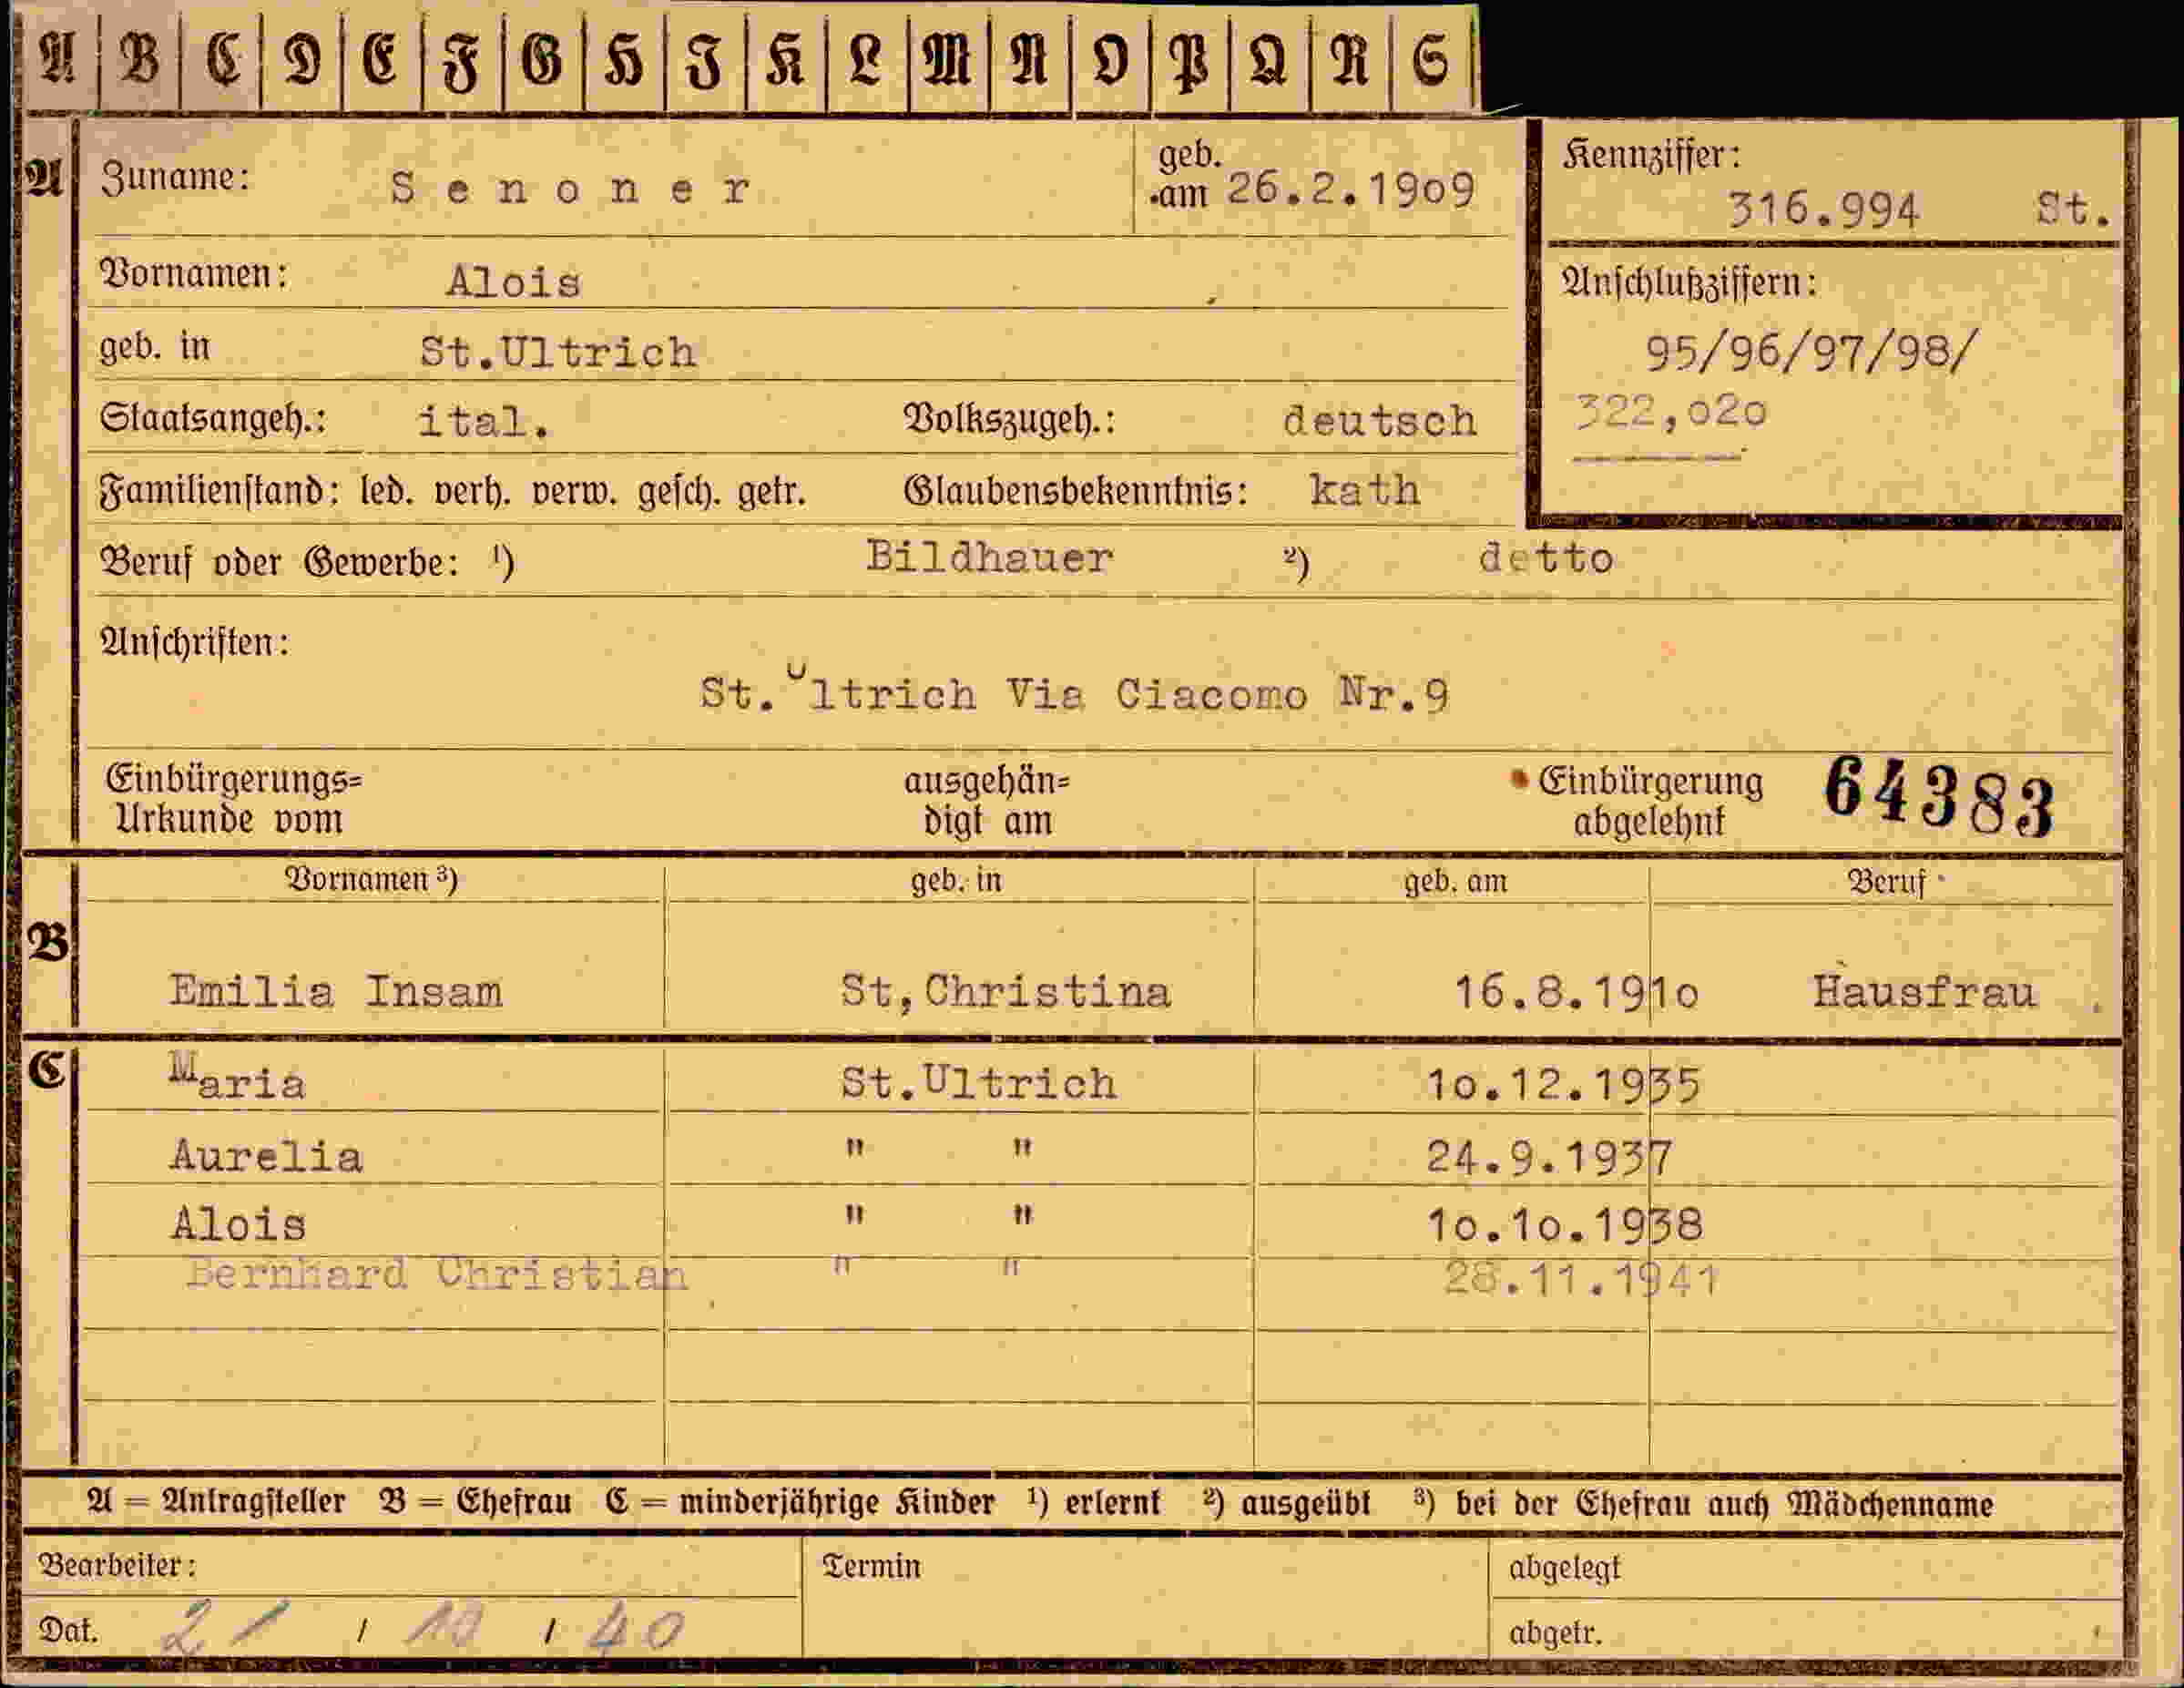 A B C D E F G H J K L M N O P Q R S
A Zuname: Senoner geb. am 26.2.1909
Kennziffer: 316.994 St.
Vornamen: Alois
Anschlußziffern:
geb. in St.Ultrich
95/96/97/98/
Staatsangeh.: ital. Volkszugeh.: deutsch
322,020
Familienstand: led. verh. verw. gesch. getr. Glaubensbekenntnis: kath
Beruf oder Gewerbe: ¹) Bildhauer ²) detto
Anschriften:
St.Ultrich Via Ciacomo Nr.9
Einbürgerungs= ausgehän= Einbürgerung 64383
Urkunde vom digt am abgelehnt
Vornamen ³) geb. in geb. am Beruf
B Emilia Insam St,Christina 16.8.1910 Hausfrau
C Maria St.Ultrich 10.12.1935
Aurelia " " 24.9.1937
Alois " " 10.10.1938
Bernhard Christian " " 28.11.1941
A = Antragsteller B = Ehefrau C = minderjährige Kinder ¹) erlernt ²) ausgeübt ³) bei der Ehefrau auch Mädchenname
Bearbeiter: Termin abgelegt
Dat. 21 / 10 / 40 abgetr.